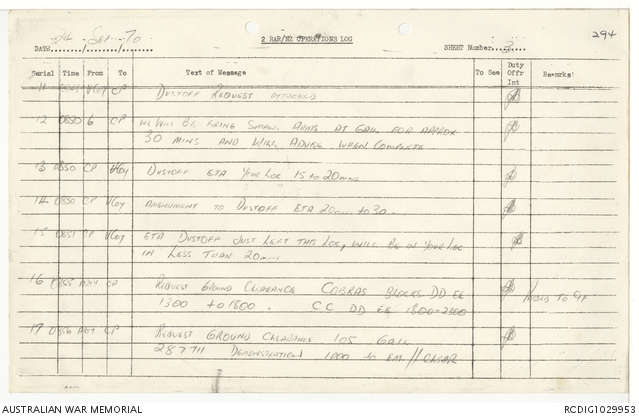 294
2 RAR/NZ OPERATIONS LOG
DATE 04 / Sep / 70
SHEET Number 2
Serial Time From To Text of Message To See Duty Offr Int Remarks
11 VCoy CP DUSTOFF REQUEST
12 0830 6 CP WE WILL BE FIRING SMALL ARMS AT GAIL FOR APPROX
30 MINS AND WILL ADVISE WHEN COMPLETE
13 0850 CP VCoy DUSTOFF ETA YOUR LOC 15 to 20 mins
14 0850 CP VCoy AMENDMENT TO DUSTOFF ETA 20 to 30
15 0851 CP VCoy ETA DUSTOFF JUST LEFT THIS LOC, WILL BE IN YOUR LOC
IN LESS THAN 20 mins
16 0855 CP REQUEST GROUND CLEARANCE COBRAS BLOCKS DD EE
1300 to 1800 . CC DD EE 1800-2300
17 0856 CP REQUEST GROUND CLEARANCE 105 GAIL
287711 DEMONSTRATION 1000 to
AUSTRALIAN WAR MEMORIAL
RCDIG1029953